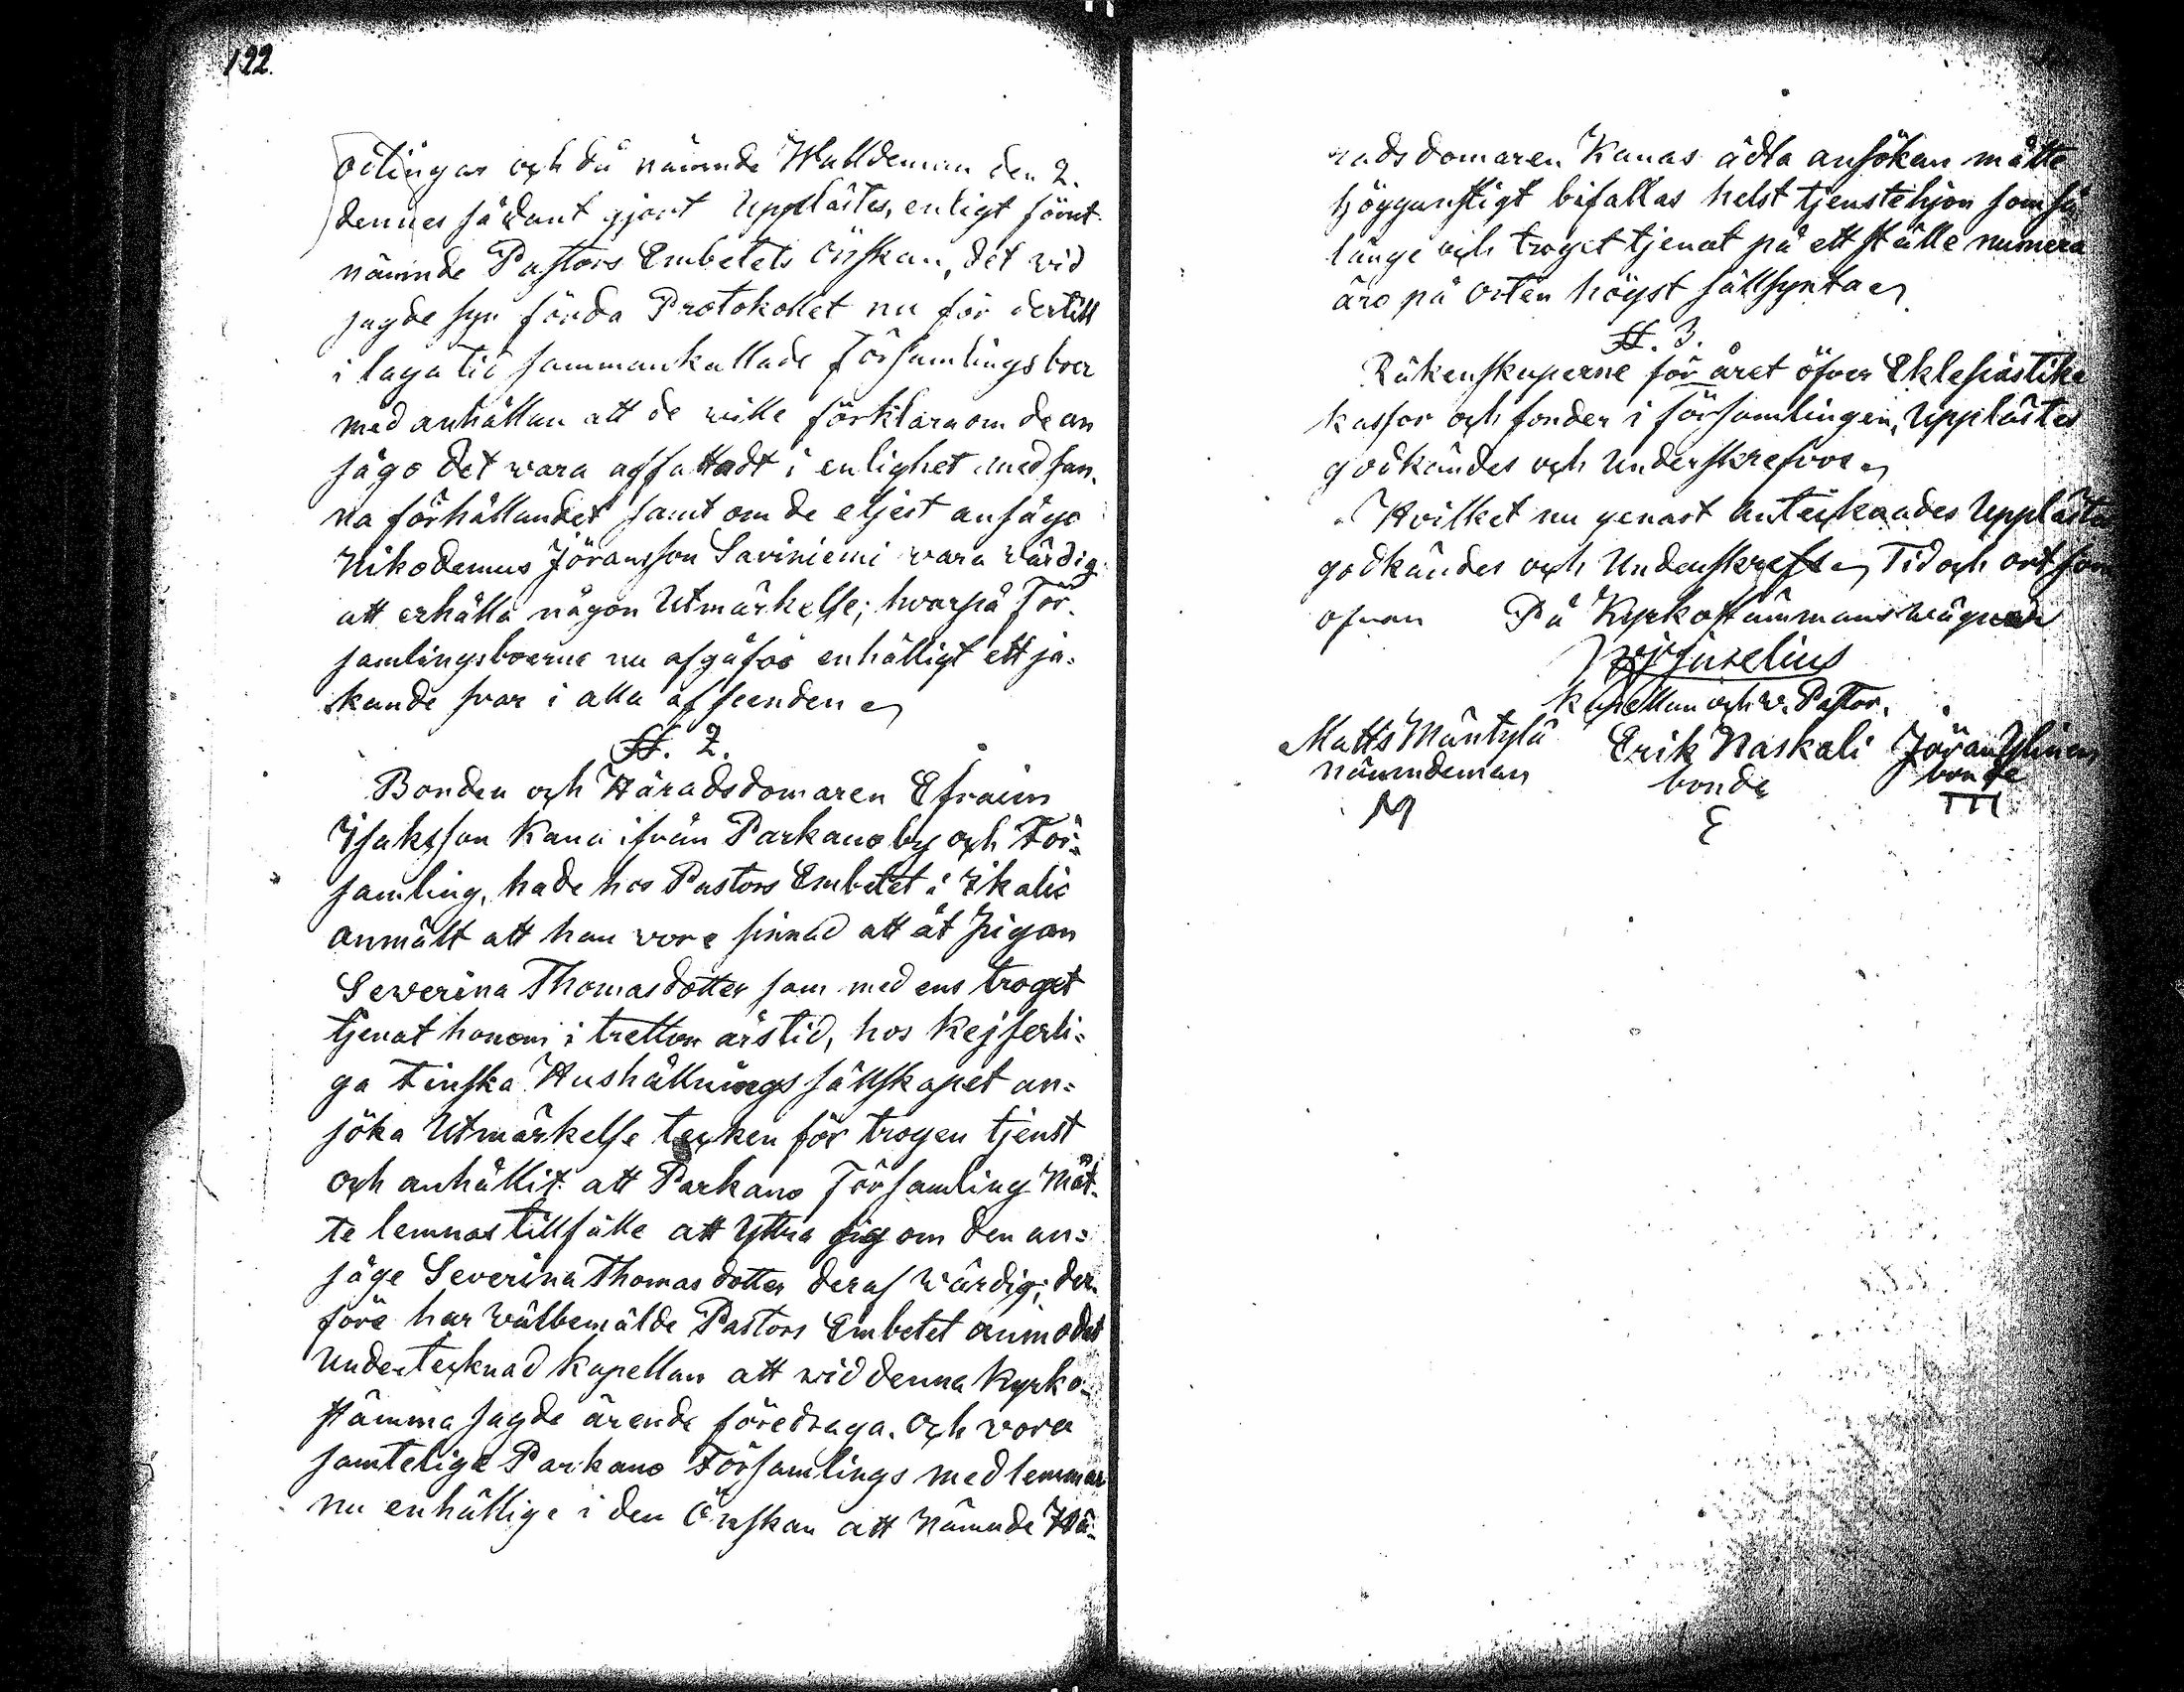 122.
odlingar och då nämnde Walldeman den 2.
dennes sådant gjort upplästes, enligt först
nämnde Pastors Embetets önskan, det vid
sagde syn förda Protokollet nu för dertill
i laga tid sammankallade Församlingsboer
med anhållan att de wille förklara om de an
sågo det wara affattadt i enlighet med san-
na förhållandet samt om de eljest ansågo
Nikodemus Jöransson Saviniemi wara wärdig
att erhålla någon Utmärkelse; hvarpå För-
samlingsboerne nu afgåfvo enhälligt ett ja-
kande svar i alla afseenden
§. 2.
Bonden och Häradsdomaren Efraim
Isaksson Kana ifrån Parkano by och För-
samling, hade hos Pastors Embetet i Ikalis
anmält att han vore sinnad att åt Pigan
Severina Thomasdotter som med ens troget
tjenat honom i tretton årstid, hos Kejserli-
ga Finska Hushållnings sällskapet an-
söka Utmärkelse tecken för trogen tjenst
och anhållit att Parkano Församling måt-
te lemnas tillfälle att yttra sig om den an-
såge Severina Thomasdotter deraf wärdig; der-
före har wälbemälde Pastors Embetet anmodat
Undertecknad Kapellan att wid denna Kyrko-
stämma sagde ärende föredraga. Och vora
samtelige Parkano Församlings medlemmar
nu enhällige i den Önskan att Nämnde Hä-
radsdomaren Kanas ädla ansökan måtte
Höggunstigt bifallas helst tjenstehjon som så
länge och troget tjenat på ett ställe numera
äro på orten högst sällsynta
§. 3.
Räkenskaperne för året öfver Eklesiastike
kassor och fonder i församlingen, Upplästes
godkändes och underskrefvos
Hvilket nu genast antecknades Upplästes
godkändes och Underskrefs Tid och ort som
ofvan På Kyrkostämmans wägnar
Juselius
Kapellan och v. Pastor.
Matts Mäntylä Erik Raskali Jöran Ylinen
nämndeman bonde bonde
M E